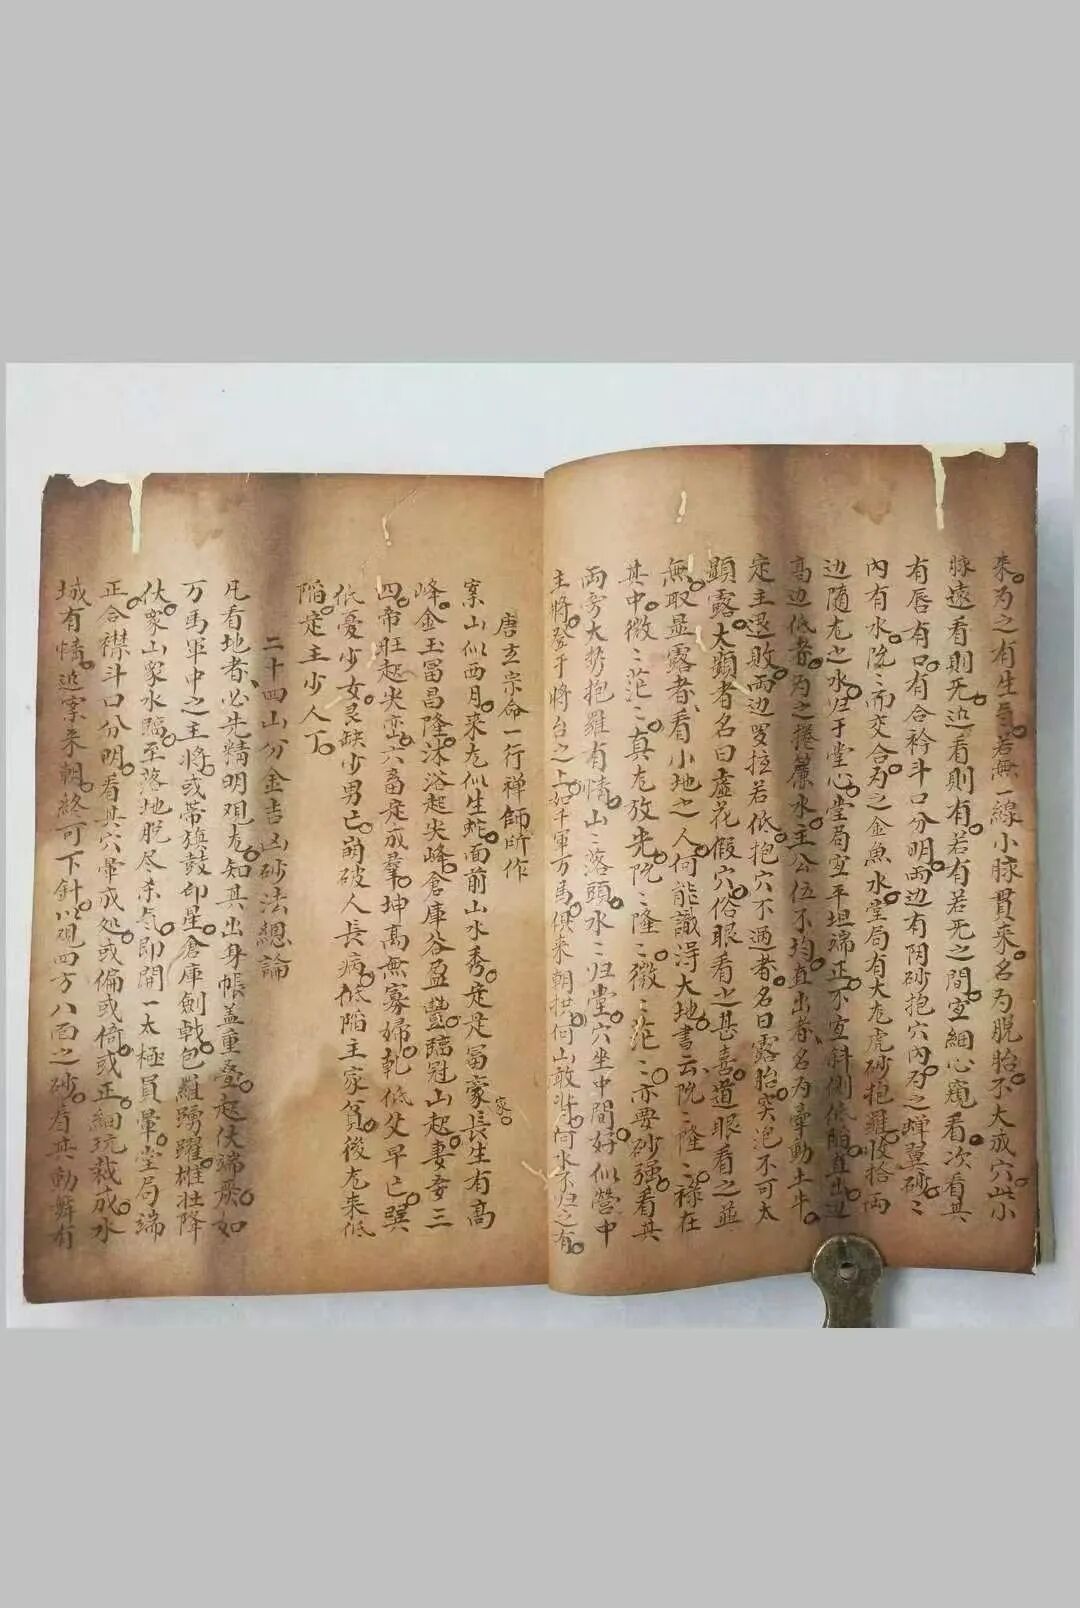 来。为之有生气。若無一線小脉貫来名为脱胎不大成穴。此小
脉遠看則无。近看則有。若有若无之間。宜細心窺看。次看其
有唇有口。有合衿斗口分明。两边有阴砂抱穴內。为之蟬翼砂。〻
內有水。隐〻而交合。为之金魚水。堂局有大龙虎砂抱羅。收拾両
边随龙之水。归于堂心。堂局宜平坦端正。不宜斜側。低陷直出。边
高边低者。为之捲簾水。主公位不均。直出者。名为牽動土牛。
定主退敗。两边罗拉若低。抱穴不過者。名曰露胎。穴
顕露。大顕者名曰虛花假穴。俗眼看之甚喜。道眼看之並
無取显露者。看小地之人。何能識浔大地。書云隐〻隆〻。禄在
其中。微〻茫〻。真龙放光。隐〻隆〻。微〻茫〻。亦要砂强。看其
両旁大势抱羅有情。山〻落頭。水〻归堂。穴坐中間。好似營中
主將。登于將台之上。如千軍万馬。俱来朝拱。何山敢背。何水不归之有。
唐玄宗命一行禅師所作
案山似西月。来龙似生蛇。面前山水秀。定是冨豪家。長生有高
峰。金玉冨昌隆。沐浴起尖峰。倉庫谷盈豐。臨冠山起。妻妾三
四。帝旺起尖峦。六畜定成羣。坤高無寡婦。乾低父早亡。巽
低憂少女。艮缺少男亡。前破人長病。低陷主家贫。後龙来低
陷。定主少人丁。
二十四山分金吉凶砂法總論
凡看地者。必先精明观龙。知其出身帳盖重叠。起伏端严。如
万馬軍中之主將。或带旗鼓印星。倉庫劍戟。包羅踴躍。雄壮降
伏。家山家水臨。至落地脱尽杀气。即開一太極員暈。堂局端
正。合襟斗口分明。看其穴暈成処。或偏或倚。或正。細玩裁成。水
城有情。近案来朝。終可下針。以观四方八面之砂。看其動舞有